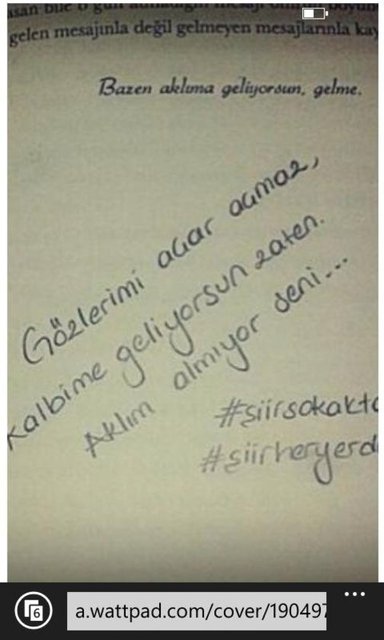 gelen mesajınla değil gelmeyen mesajlarınla kay
Bazen aklıma geliyorsun, gelme.
Gözlerimi açar açmaz,
kalbime geliyorsun zaten.
Aklım almıyor seni...
#şiirsokakta
#şiirheryerd
6
a.wattpad.com/cover/190497